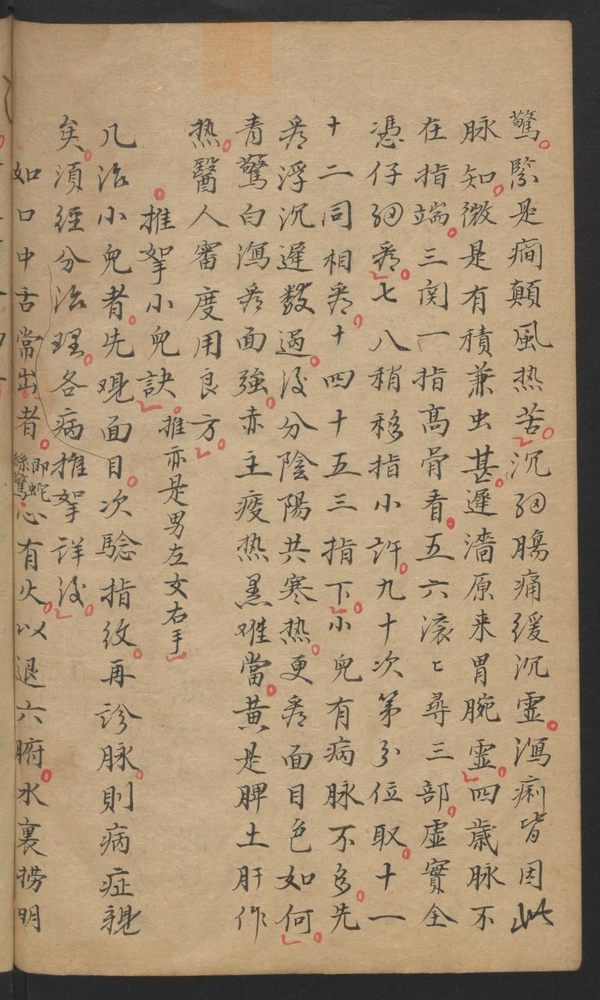 驚緊是癇顛風热苦沉细腸痛緩沉灵瀉痢皆因此
脉知微是有積兼虫甚遲濇原来胃腕灵四歲脉不
在指端三関一指高骨看五六滚〻尋三部虚實全
憑仔细看七八稍移指小許九十次第分位取十一
十二同相看十四十五三指下小兒有病脉不多先
看浮沉遲數過後分陰陽共寒热更看面目色如何
青驚白瀉看面強赤主痰热黑难當黄是脾土肝作
热醫人審度用良方
推拏小兒訣推亦是男左女右手
凡治小兒者先覌面目次驗指紋再診脉則病症親
矣須經分治理各病推拏詳後
如口中舌常出者即蛇絲驚心有火以退六腑水裏撈明